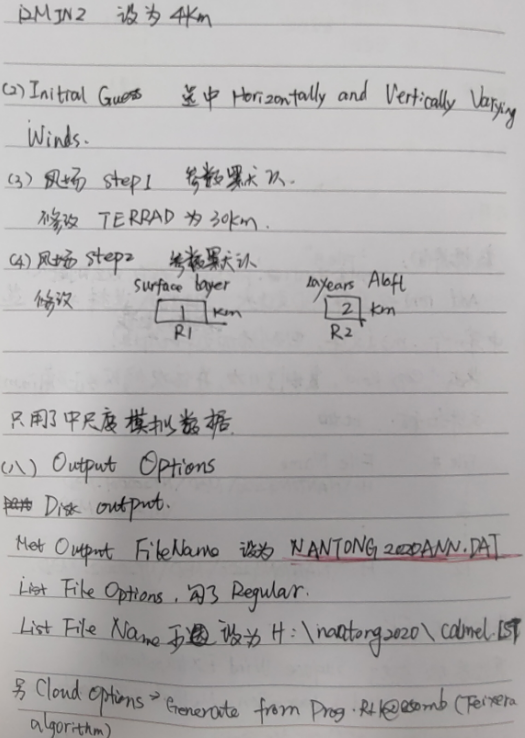 RMIN2 设为 4km
(2) Initial Guess 选中 Horizontally and Vertically Varying
Winds.
(3) 风场 step1 参数默认.
修改 TERRAD 为 30km.
(4) 风场 step2 参数默认
修改 surface layer layears Aloft
1 km 2 km
R1 R2
只用了中尺度模拟数据
(八) Output Options
Disk output.
Met Output FileName 设为 NANTONG2020ANN.DAT
List File Options, 勾了 Regular.
List File Name 设为 H:\nantong2020\calmet.LST
另 Cloud Options > Generate from Prog. (Teixera
algorithm)